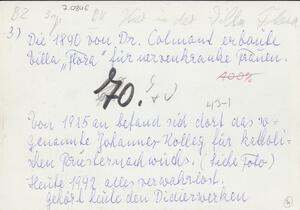 BZ 20846 Villa Flora
3) Die 1890 von Dr. Colmant erbaute
Villa „Flora" für nervenkranke Frauen.
400%
70.
G + V
43-1
Von 1915 an befand sich dort das so-
genannte Johannes-Kolleg für katholi-
schen Priesternachwuchs. (siehe Foto)
Heute 1992 alles verwahrlost.
Gehört heute den Didierwerken